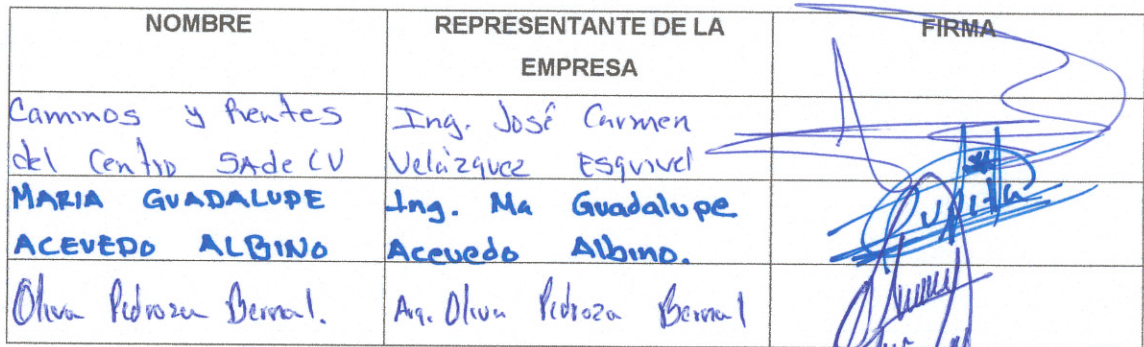 NOMBRE
REPRESENTANTE DE LA
EMPRESA
FIRMA
Caminos y Puentes
del Centro SA de CV
Ing. José Carmen
Velázquez Esquivel
MARIA GUADALUPE
ACEVEDO ALBINO
Ing. Ma Guadalupe
Acevedo Albino.
Lupita
Oliva Pedroza Bernal.
Arq. Oliva Pedroza Bernal